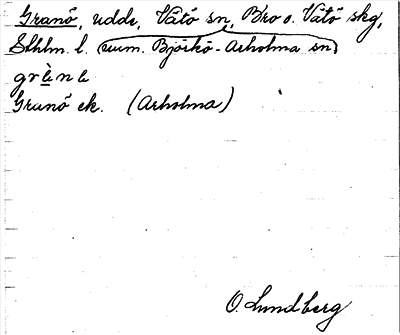 Granö, udde, Vätö sn, Bro o. Vätö skg,
Sthlm. l. (num. Björkö-Arholma sn)
grènə
Granö ek. (Arholma)
O. Lundberg